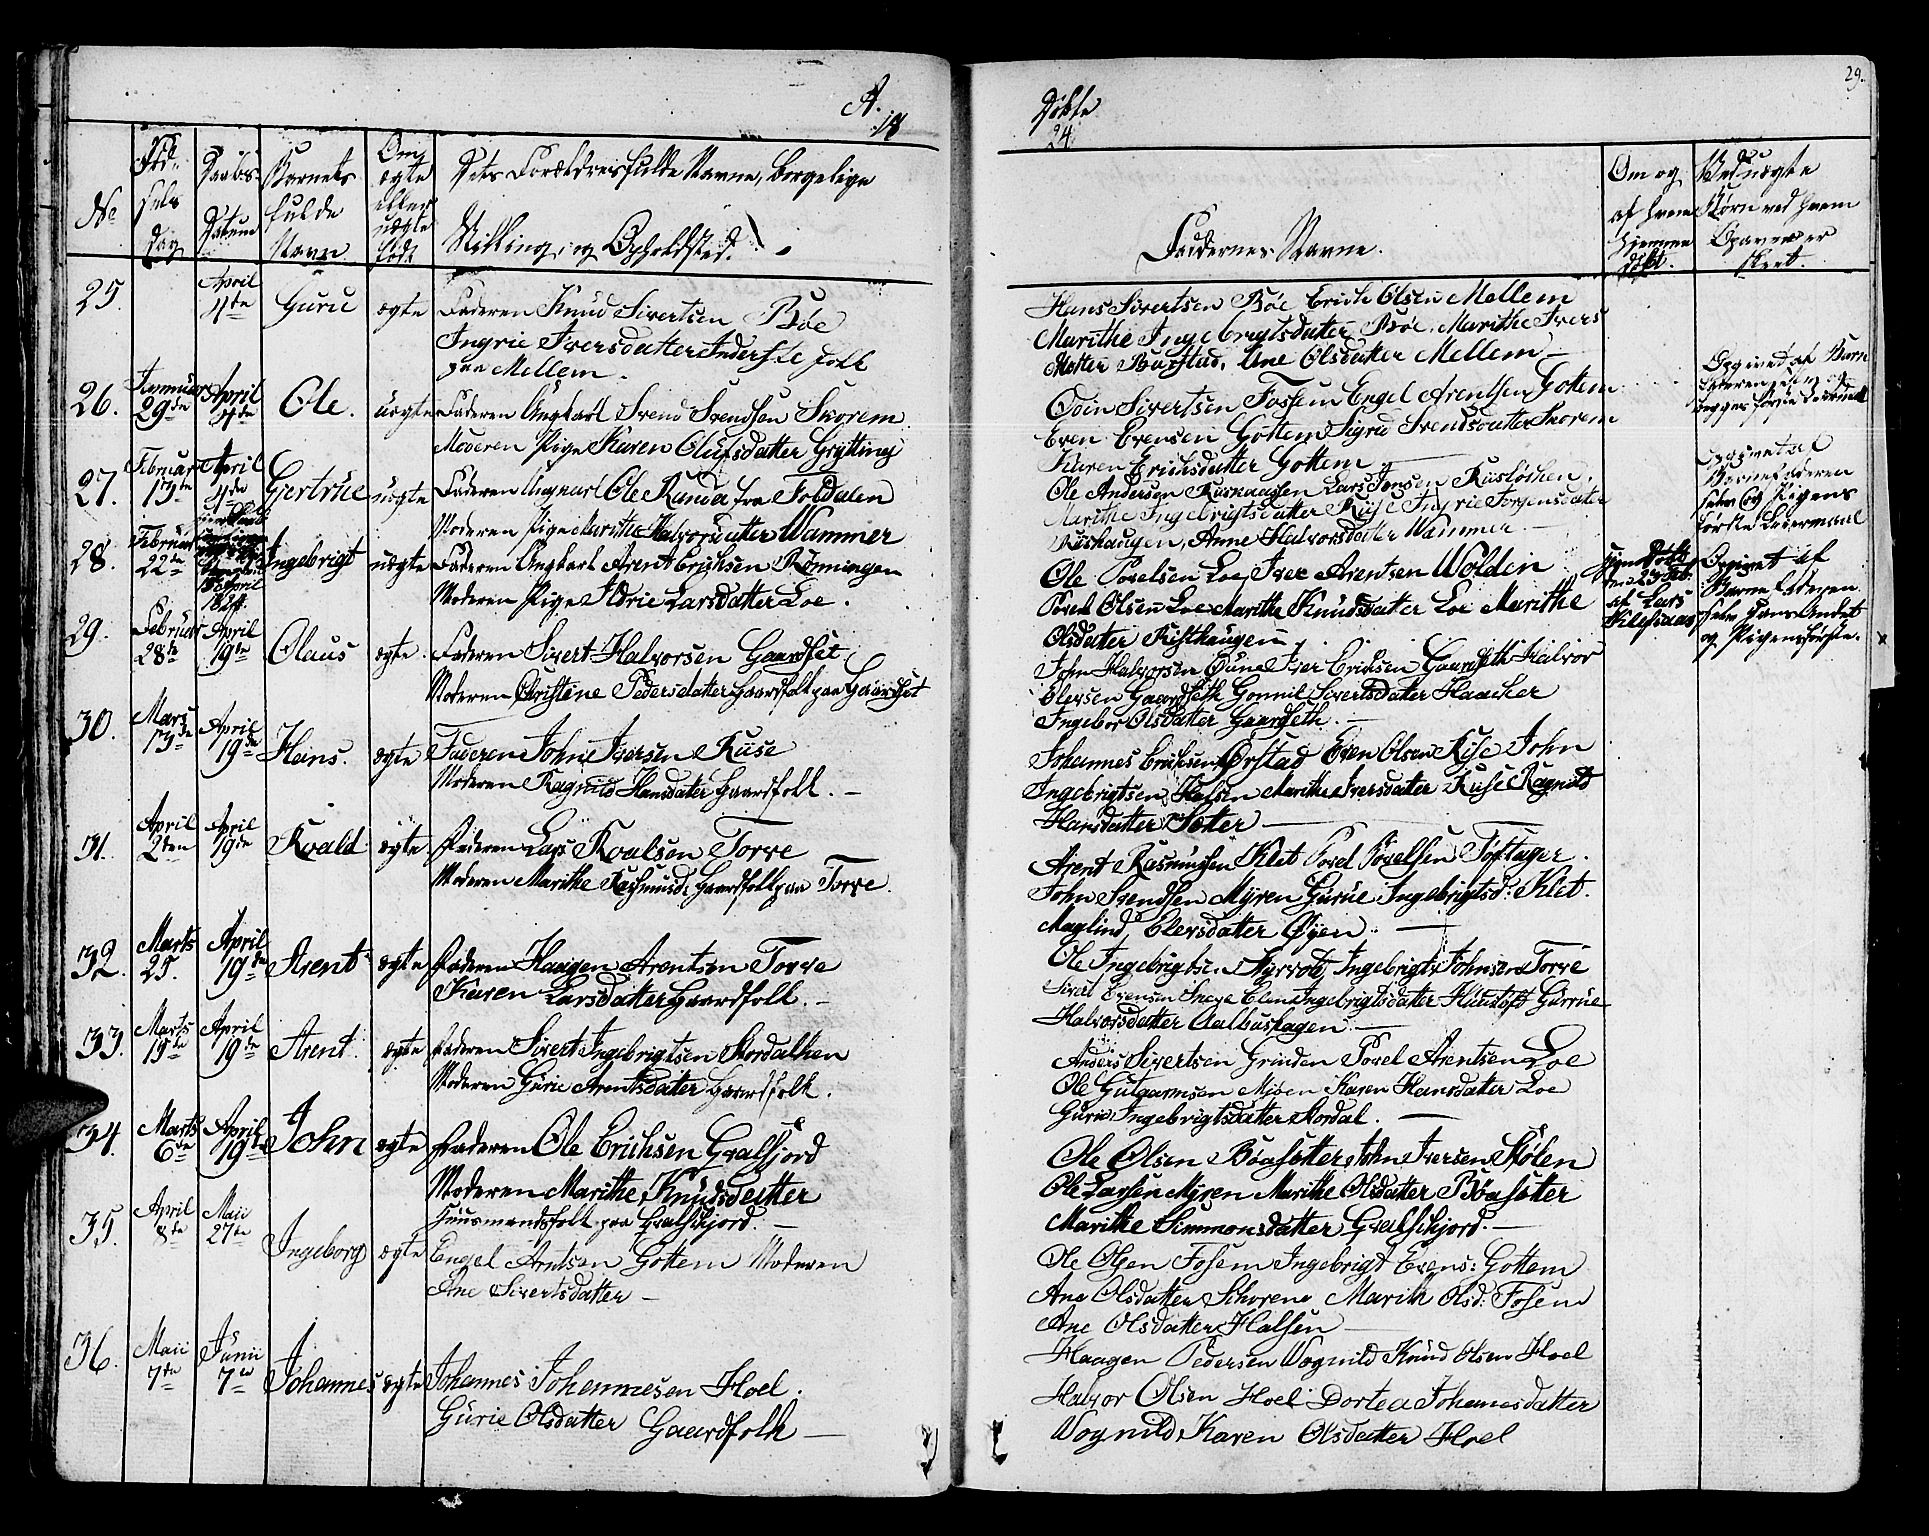 A.
18
Døbte
24
29.
No
Fød-
sels
Dag
Daabs-
Datum
Barnets
fulde
Navn
Om
ægte
eller
uægte
født
Dets Forældres fulde Navne, borgelige
Stilling, og Opholdsted.
Faddernes Navne.
Om og
af hvem
hjemme
døbt.
Ved uægte
Børn ved hvem
Opgaven er
skeet.
25.
April
4de
Gurie
ægte
Faderen Knud Sivertsen Bøe
Ingrie Iversdatter Inderste folk
paa Mellem.
Hans Sivertsen Bøe Erich Olsen Mellem
Marithe Ingebrigtsdatter Bøe, Marithe Ivers
datter Ane Olsdatter Mellem —
26.
Januar
29de
April
4de
Ole.
uægte
Faderen Ungkarl Svend Svendsen Skorem
Moderen Pige Karen Olufsdatter Grytting
Odin Sivertsen Fossem Engel Arentsen Gottem
Even Evensen Gottem Sigrid Svendsdatter Skorem
Karen Erichsdatter Gottem —
Opgivet af Barne
faderen selv og
begges første Leiermaal
27.
Februar
April
4de
Gjertrue
uægte
Faderen Ungkarl Ole Runda fra Foldalen
Moderen Pige Marithe Halvorsdatter Wammer
Ole Andersen Lars Jonsen
Marithe Ingebrigtsdatter Ruse Ingrie Jørgensdatter
Anne Halvorsdatter Wammer —
Opgivet af
Barnefaderen
selv og Pigens
første Leiermaal
28.
Februar
22de
18 April
1824.
Ingebrigt
uægte
Faderen Ungkarl Arent Erichsen Rønningen
Moderen Pige Ildrie Larsdatter Loe.
Ole Povelsen Loe, Iver Arentsen Wolden
Povel Olsen Loe Marithe Knudsdatter Loe Marithe
Olsdatter Kisthaugen
hjemdøbt
den 23 Feb.
af Lars
Opgivet af
Barnefaderen
selv hans Andet
og Pigens første.
29.
Februar
28de
April
19de
Olaus
ægte.
Faderen Sivert Halvorsen Gaardset
Moderen Christine Pedersdatter Gaardfolk paa Gaardset
John Halvorsen Iver Erichsen Gaardseth Halvor
Elevsen Gaardseth Gonnil Sivertsdatter Haacker
Ingebor Olsdatter Gaardseth. —
30.
Mars
13de
April
19de
Hans.
ægte
Faderen John Iversen Ruse
Moderen Ragnild Hansdatter Gaardfolk. —
Johannes Erichsen Ørstad Even Olsen Ruse John
Ingebrigtsen Halsen Marithe Iversdatter Ruse Ragnild
Hansdatter Sæter —
31.
April
2den
April
19de
Roald
ægte
Faderen Lars Roalsen Torve
Moderen Marithe Rasmusd: Gaardfolk paa Torve.
Arent Rasmussen Klet Povel Povelsen Toftager.
John Svendsen Myren Gurue Ingebrigtsd: Klet.
Maglind, Elevsdatter Øyen. —
32.
Marts
25.
April
19de
Arent
ægte
Faderen Haagen Arentsen Torve
Karen Larsdatter Gaardfolk. —
Ole Ingebrigtsen Ingebrigt Johnsen Torve
Sivert Evensen Elen Ingebrigtsdatter Gurrue
Halvorsdatter Aalbushagen. —
33.
Marts
15de
April
19de
Arent
ægte
Faderen Sivert Ingebrigtsen Stordalhen
Moderen Gurie Arentsdatter Gaardfolk.
Anders Sivertsen Grinden Povel Arentsen Loe
Ole Gulgarmsen Mjøen Karen Hansdatter Loe
Gurie, Ingebrigtsdatter Stordal. —
34.
Marts
6de
April
19de
John
ægte
Faderen Ole Erichsen Gralfjord
Moderen Marithe Knudsdatter
Huusmandsfolk paa Gralfskjord. —
Ole Olsen Bøasæter John Iversen Stølen
Ole Larsen Myren Marithe Olsdatter Bøasæter
Marithe Simmonsdatter Gralfskjord. —
35.
April
8de
Maii
27de
Ingeborg
ægte
Engel Arntsen Gottem Moderen
Ane Sivertsdatter —
Ole Olsen Fosem Ingebrigt Evens: Gottem
Ane Olsdatter Skorem Marith Olsd: Fosem
Ane Olsdatter Halsen —
36.
Maii
7de
Junii
7de
Johannes
ægte
Johannes Johannesen Hoel.
Gurie Olsdatter Gaardfolk —
Haagen Pedersen Wognild Knud Olsen Hoel
Halvor Olsen Hoel Dortea Johannesdatter
Wognild, Karen Olsdatter Hoel